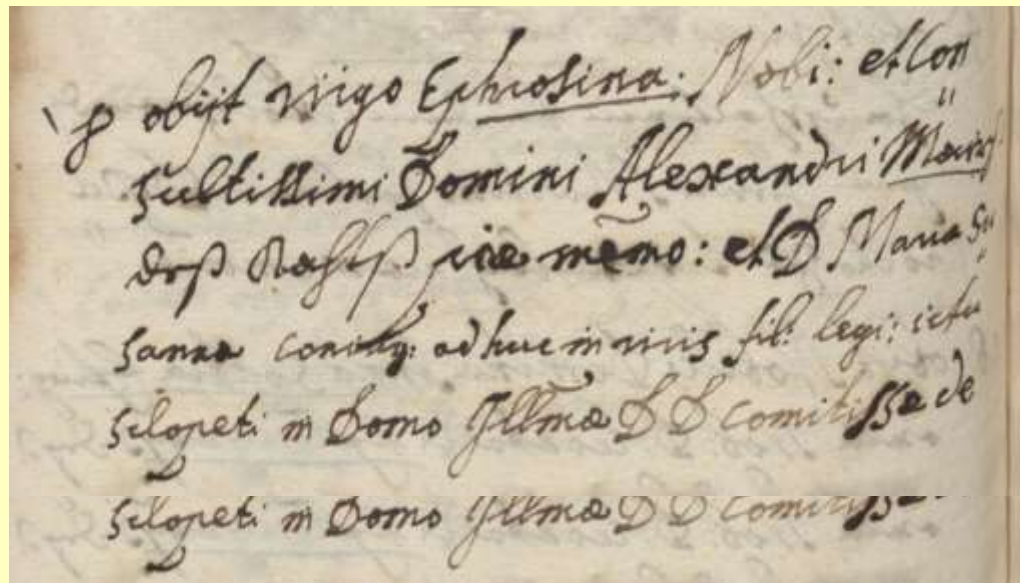 obijt virgo Ephrosina: Nobi: et Con
sultissimi Domini Alexandri
piae memo: et D Maria Su
sanna coniug: ad huc in vivis fil: legi: ictu
sclopeti in Domo Illmae D D Comitissae de
sclopeti in Domo Illmae D D Comitissae